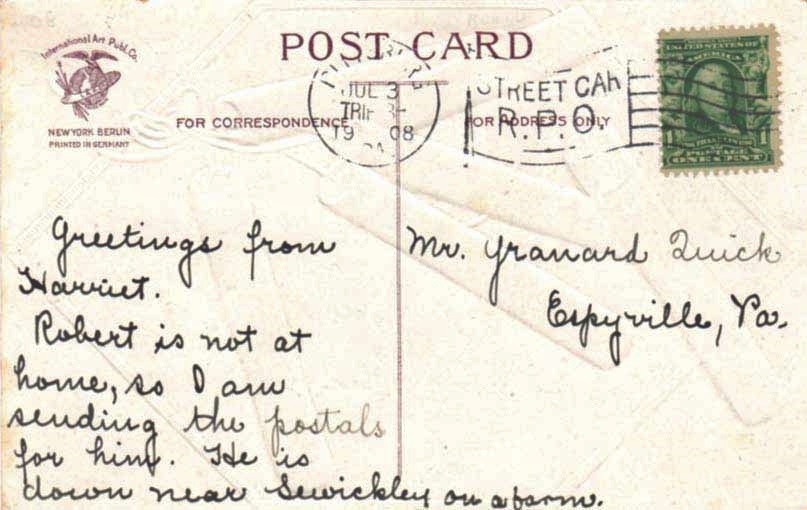 International Art Publ. Co.
NEW YORK BERLIN
PRINTED IN GERMANY
POST CARD
FOR CORRESPONDENCE
FOR ADDRESS ONLY
JUL 3
TRIP
1908
PA.
STREET CAR
R.P.O.
UNITED STATES OF AMERICA
1 1
FRANKLIN
ONE CENT
Greetings from
Harriet.
Robert is not at
home, so I am
sending the postals
for him. He is
down near Sewickley on a farm.
Mr. Granard Quick
Espyville, Pa.